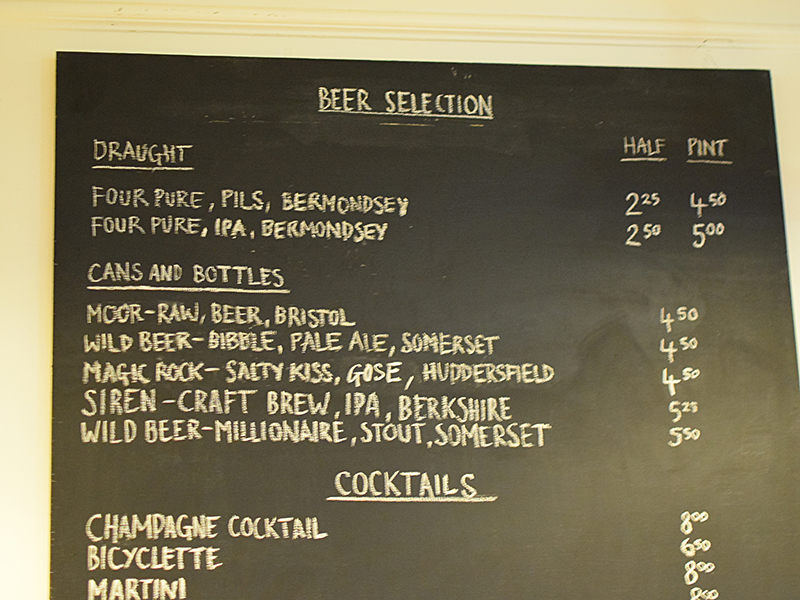 BEER SELECTION
DRAUGHT HALF PINT
FOUR PURE, PILS, BERMONDSEY 2.25 4.50
FOUR PURE, IPA, BERMONDSEY 2.50 5.00
CANS AND BOTTLES
MOOR-RAW, BEER, BRISTOL 4.50
WILD BEER-BIBBLE, PALE ALE, SOMERSET 4.50
MAGIC ROCK-SALTY KISS, GOSE, HUDDERSFIELD 4.50
SIREN-CRAFT BREW, IPA, BERKSHIRE 5.25
WILD BEER-MILLIONAIRE, STOUT, SOMERSET 5.50
COCKTAILS
CHAMPAGNE COCKTAIL 8.00
BICYCLETTE 6.50
MARTINI 8.00